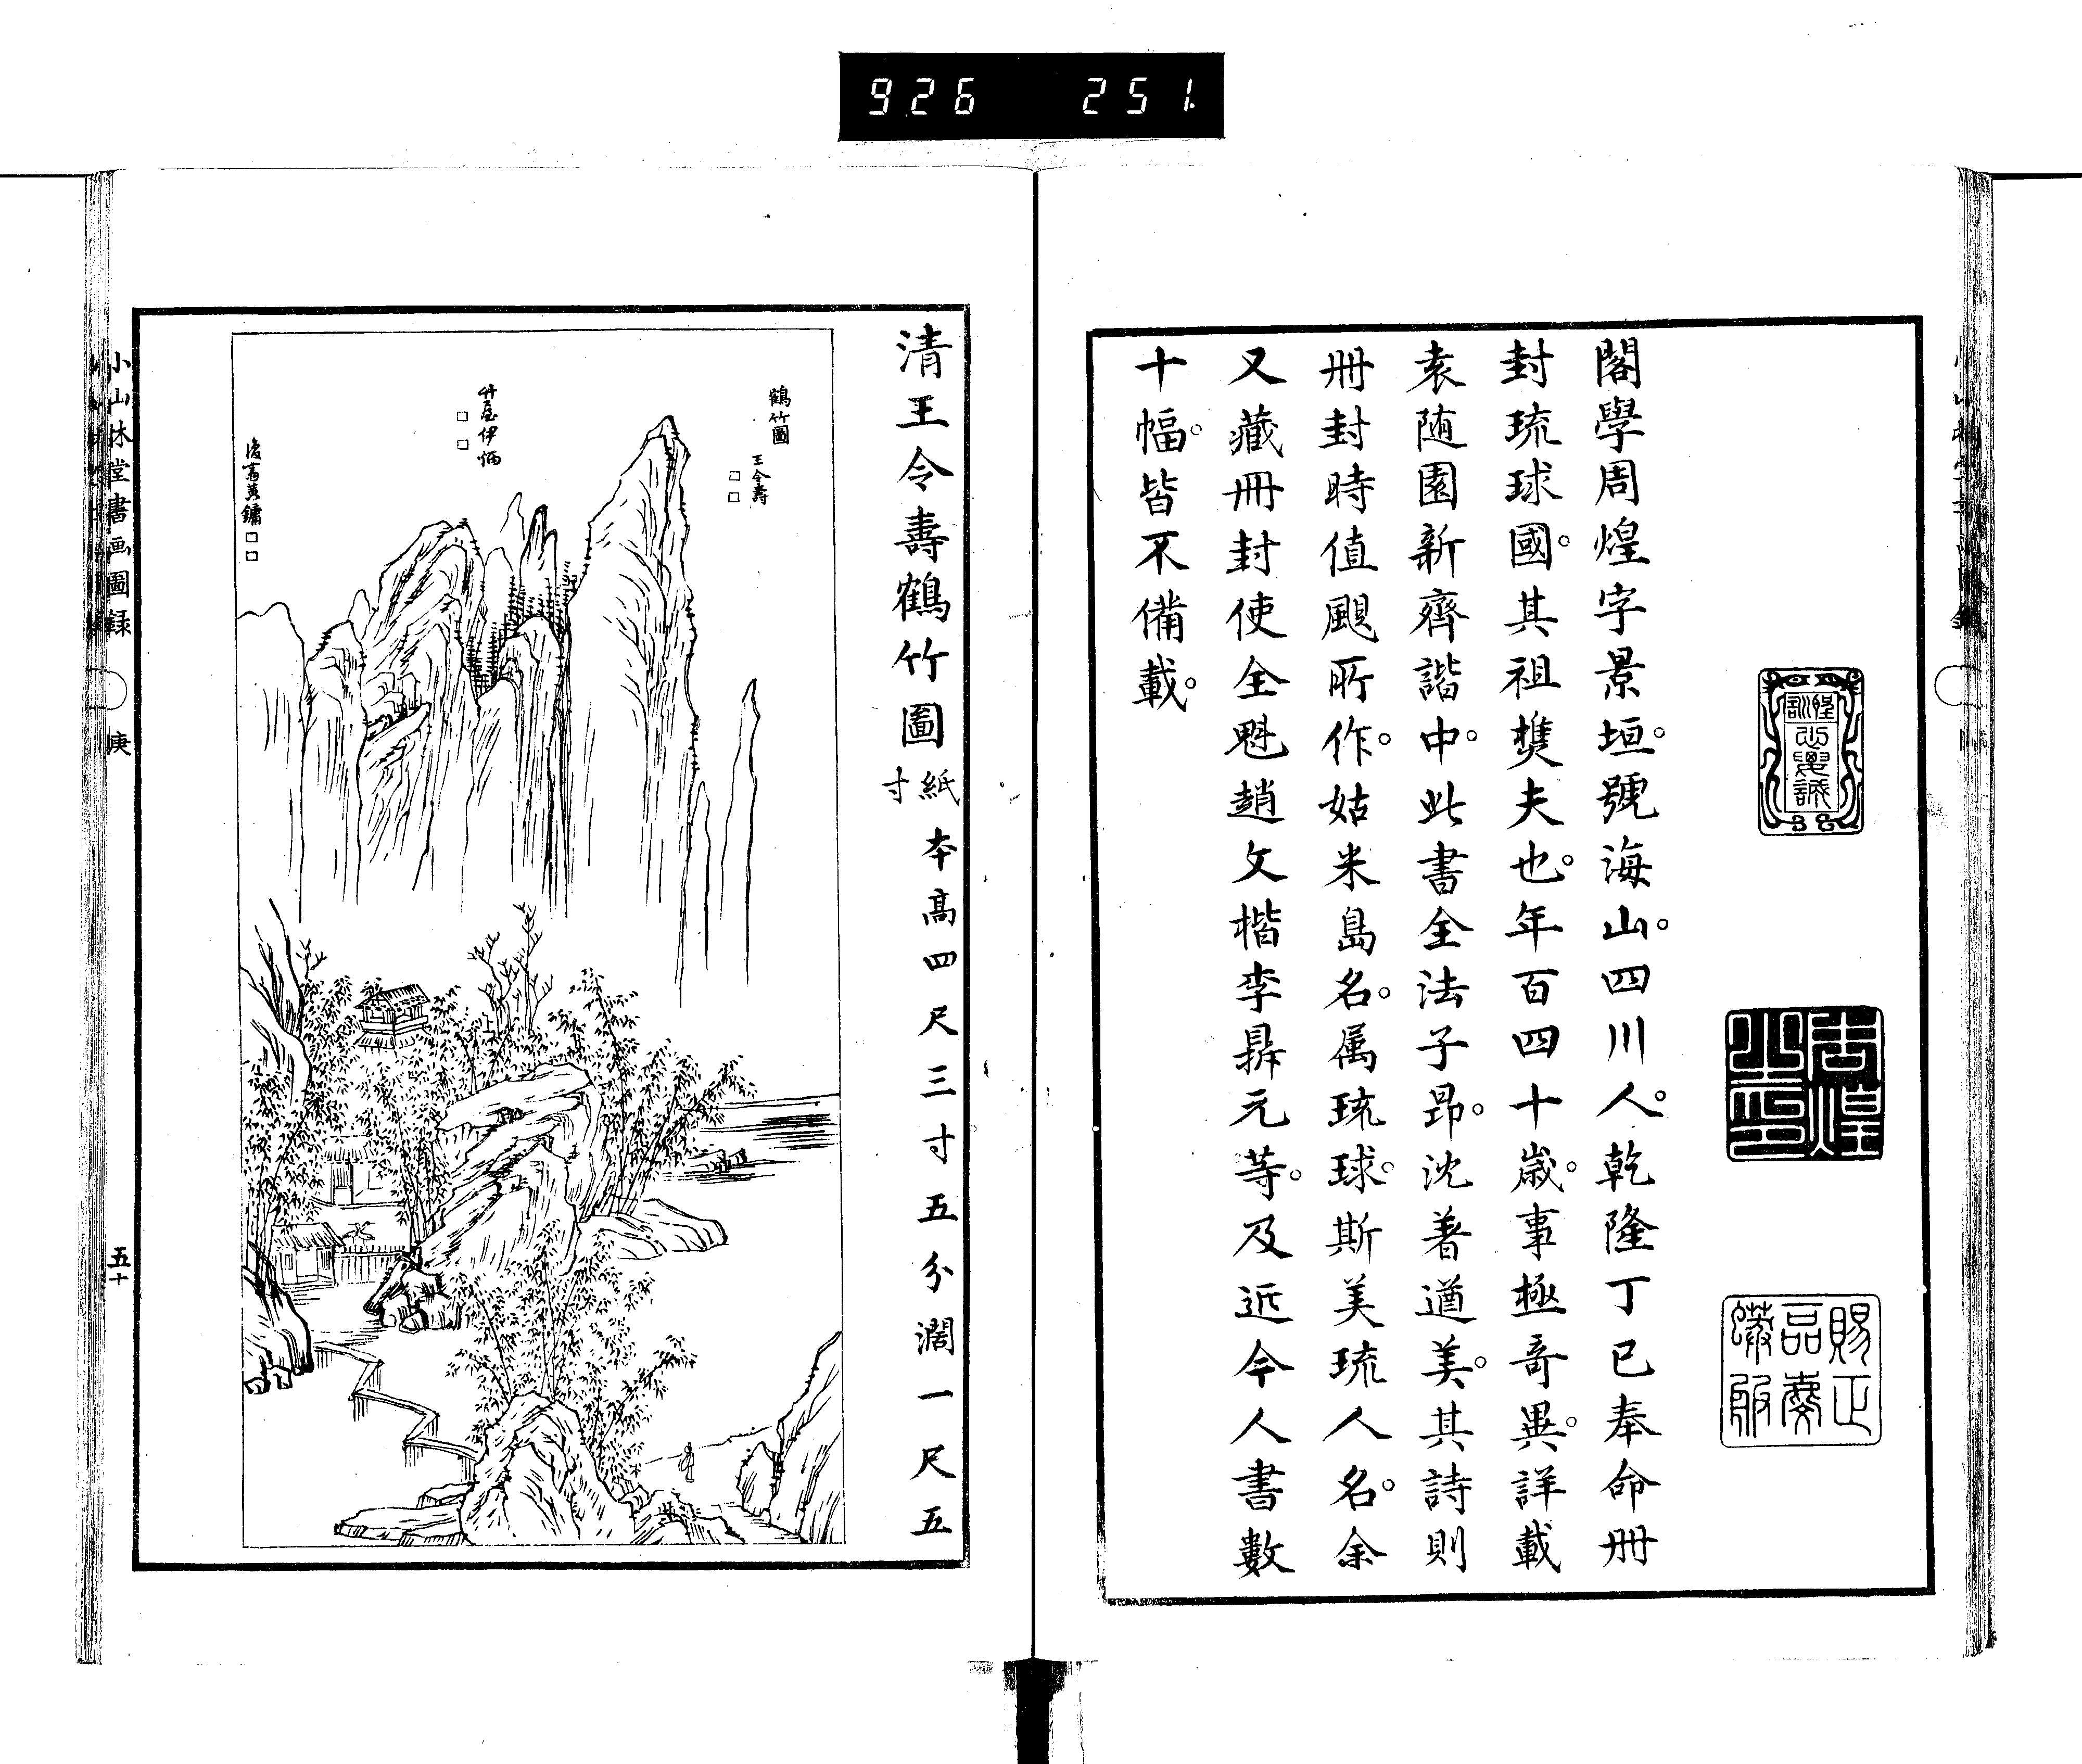 926 251.
閣學周煌字景垣。號海山。四川人。乾隆丁巳奉命冊
封琉球國。其祖㸗夫也。年百四十歲。事極奇異。詳載
袁随園新齊諧中。此書全法子昂。沈著遒美。其詩則
冊封時值颶所作。姑米島名。属琉球。斯美琉人名。余
又藏冊封使全魁趙文楷李鼎元等。及近今人書數
十幅。皆不備載。
周煌之印
賜正一品麟蟒服
清王令壽鶴竹圖 紙本高四尺三寸五分濶一尺五
寸
鶴竹圖
王令壽
竹屋伊炳
後書黄鏞
小山林堂書画圖録 庚 五十